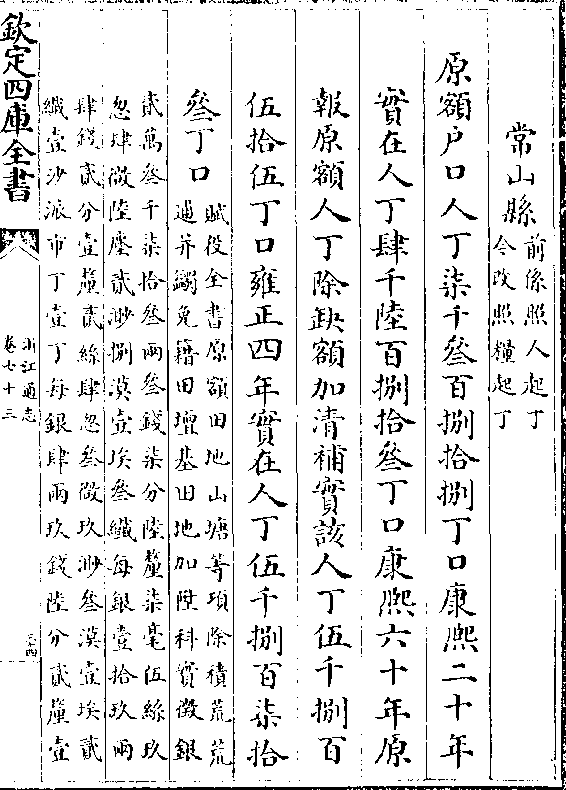 常山縣前係照人起丁
今改照糧起丁
原額戶口人丁柒千叁百捌拾捌丁口康熙二十年
實在人丁肆千陸百捌拾叁丁口康熙六十年原
報原額人丁除缺額加清補實該人丁伍千捌百
伍拾伍丁口雍正四年實在人丁伍千捌百柒拾
叁丁口賦役全書原額田地山塘等項除積荒荒
逋并蠲免籍田壇基田地加陞科實徵銀
貳萬叁千柒拾叁兩叁錢柒分陸釐柒毫伍絲玖
忽肆微陸塵貳渺捌漠壹埃叁纖每銀壹拾玖兩
肆錢貳分壹釐貳絲肆忽叁微玖渺叁漠壹埃貳
纖壹沙派市丁壹丁每銀肆兩玖錢陸分貳釐壹
欽定四庫全書
浙江通志
卷七十三
三四